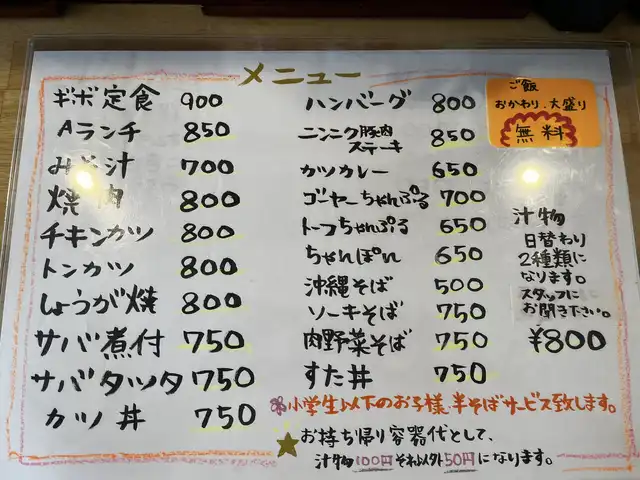 メニュー
ギボ定食 900
Aランチ 850
みそ汁 700
焼肉 800
チキンカツ 800
トンカツ 800
しょうが焼 800
サバ煮付 750
サバタツタ 750
カツ丼 750
ハンバーグ 800
ニンニク豚肉
ステーキ 850
カツカレー 650
ゴーヤーちゃんぷる 700
トーフちゃんぷる 650
ちゃんぽん 650
沖縄そば 500
ソーキそば 750
肉野菜そば 750
すた丼 750
ご飯
おかわり、大盛り
無料
汁物
日替わり
2種類に
なります。
スタッフに
お聞き下さい。
¥800
小学生以下のお子様、半そばサービス致します。
★お持ち帰り容器代として、
汁物100円それ以外50円になります。